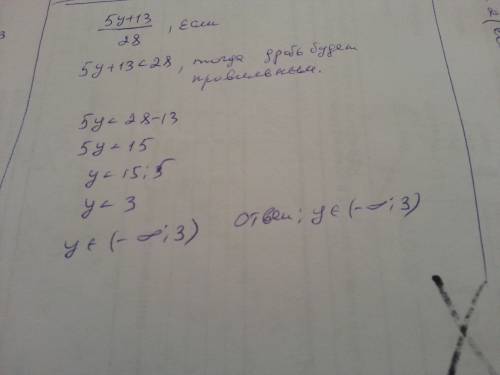 5y+13
28 , если
5y+13<28, тогда дробь будет
правильным.
5y<28-13
5y<15
y<15:5
y<3
y∈(-∞;3) Ответ: y∈(-∞;3)